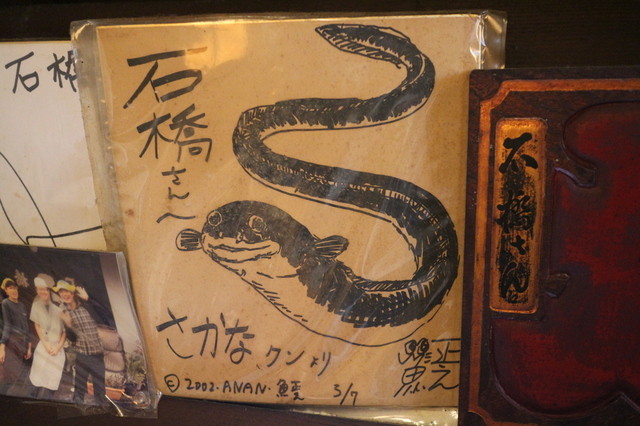 石
石橋
さんへ
さかなクンより
© 2002. ANAN. 鰻 5/7
正之
石橋さん江